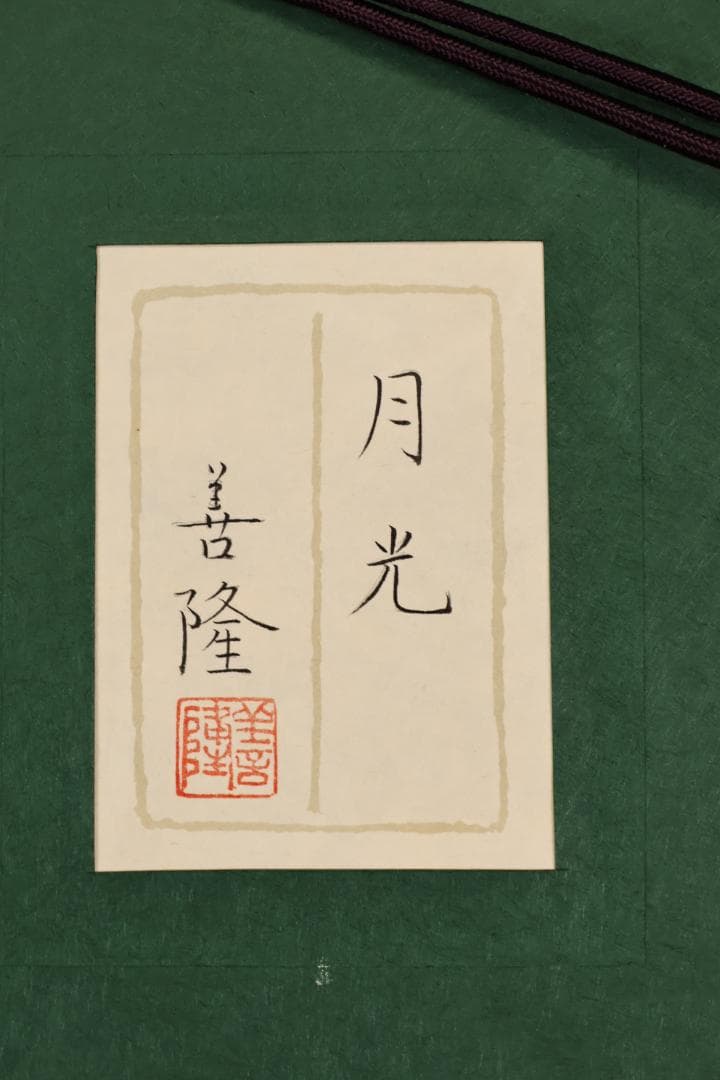 月光
善隆
善隆